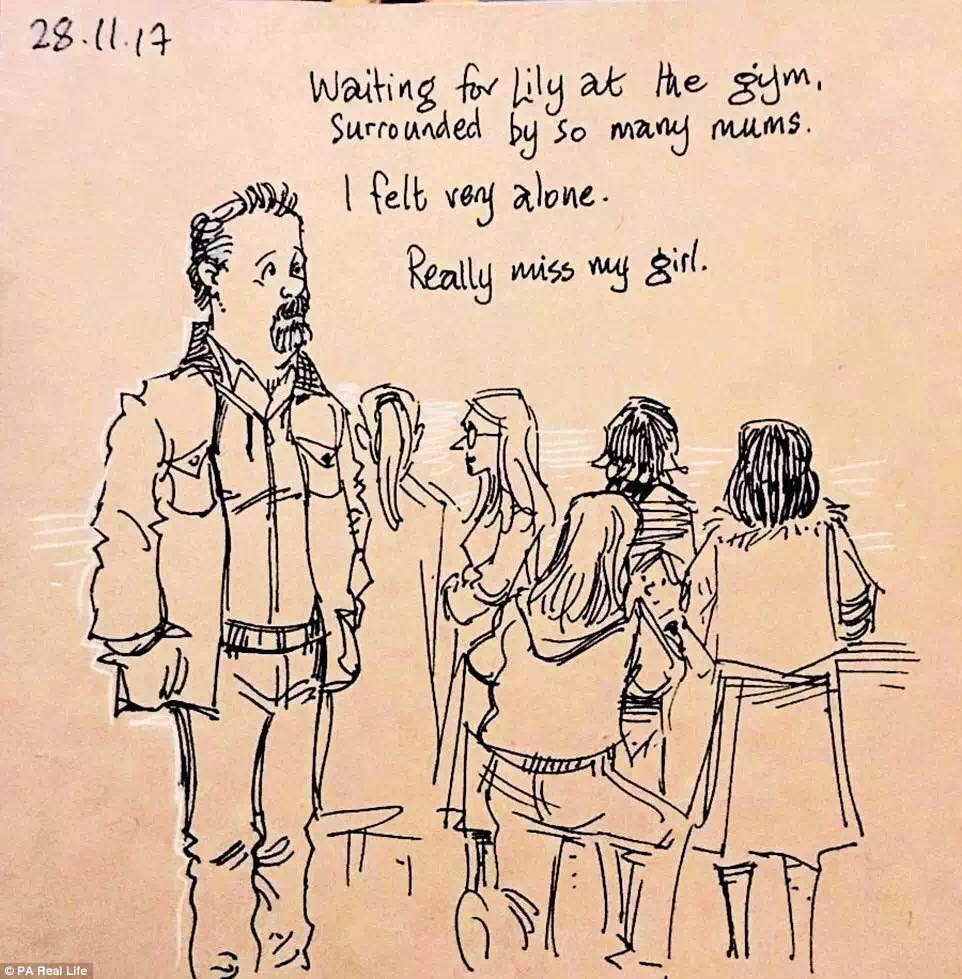 28.11.17
Waiting for Lily at the gym.
Surrounded by so many mums.
I felt very alone.
Really miss my girl.
© PA Real Life